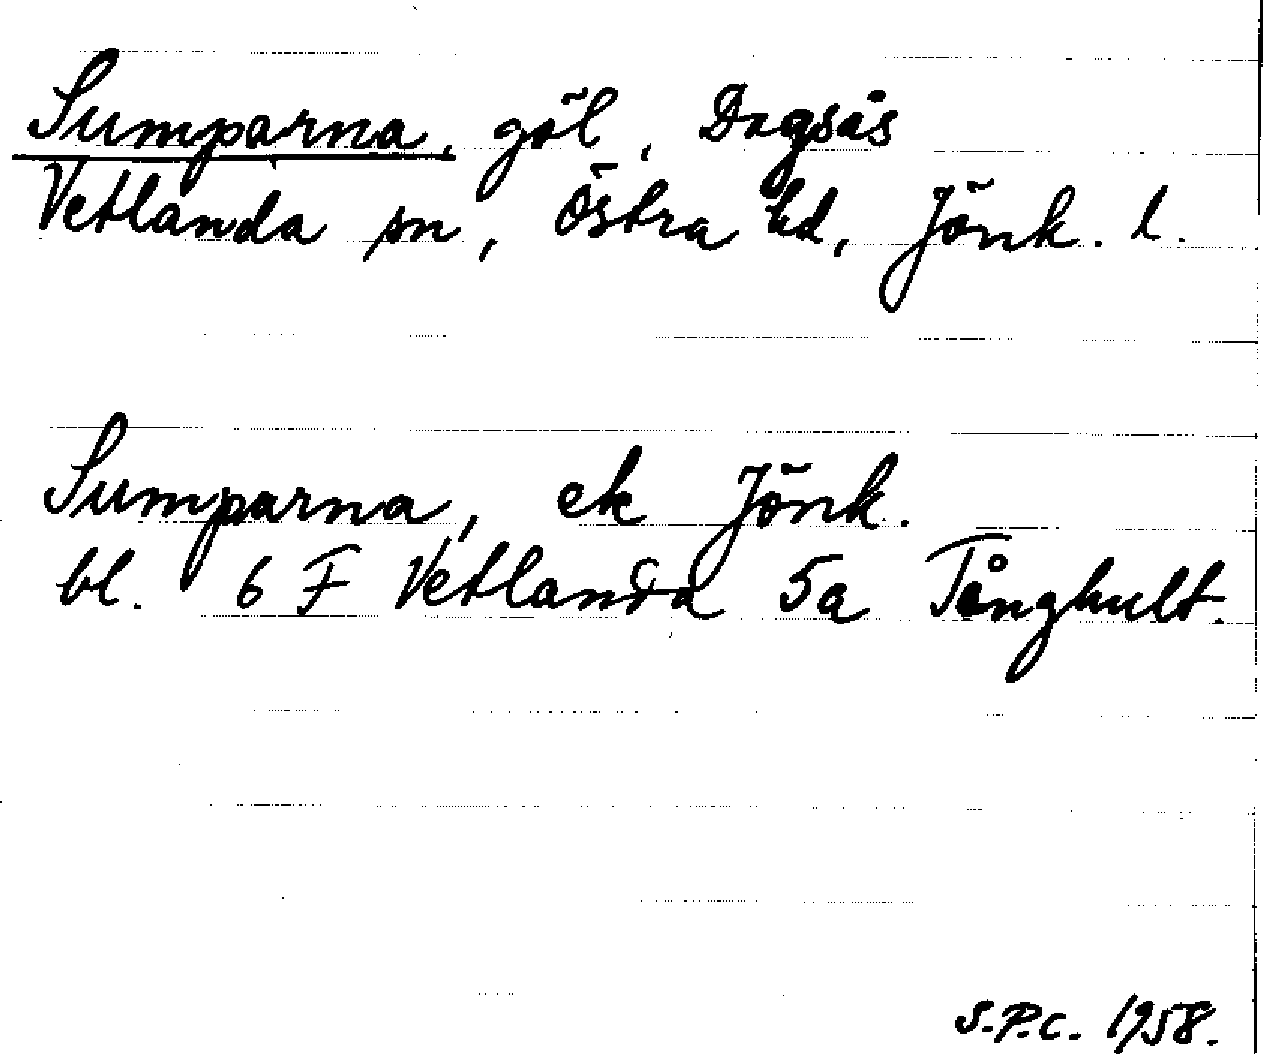 Sumparna, göl, Dagsås
Vetlanda sn, Östra hd, Jönk. l.
Sumparna, ek Jönk.
bl. 6 F Vetlanda 5a Tånghult.
S.P.C. 1958.